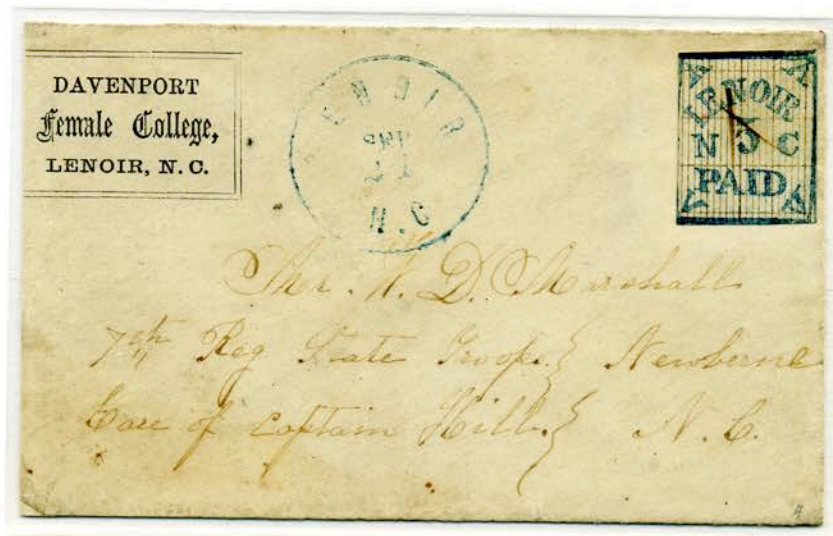 DAVENPORT
Female College,
LENOIR, N. C.
LENOIR
SEP
N.C
LENOIR
N 5 C
PAID
Mr. W. D. Marshall
7th Reg State Troops } Newberne
Care of Captain Hill. } N. C.